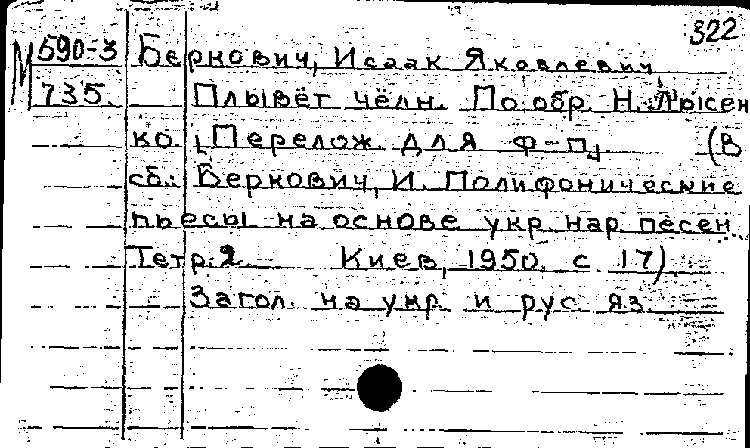 322
М 590-3 Бернович, Исаак Яковлевич
735. Плывёт чёлн. По обр. Н. Лысен
ко. [Перелож. для ф-п.] (В
сб.: Беркович, И. Полифонические
пьесы на основе укр. нар. песен.
Тетр. 2. Киев, 1950. с. 17)
Загол. на укр. и рус. яз.